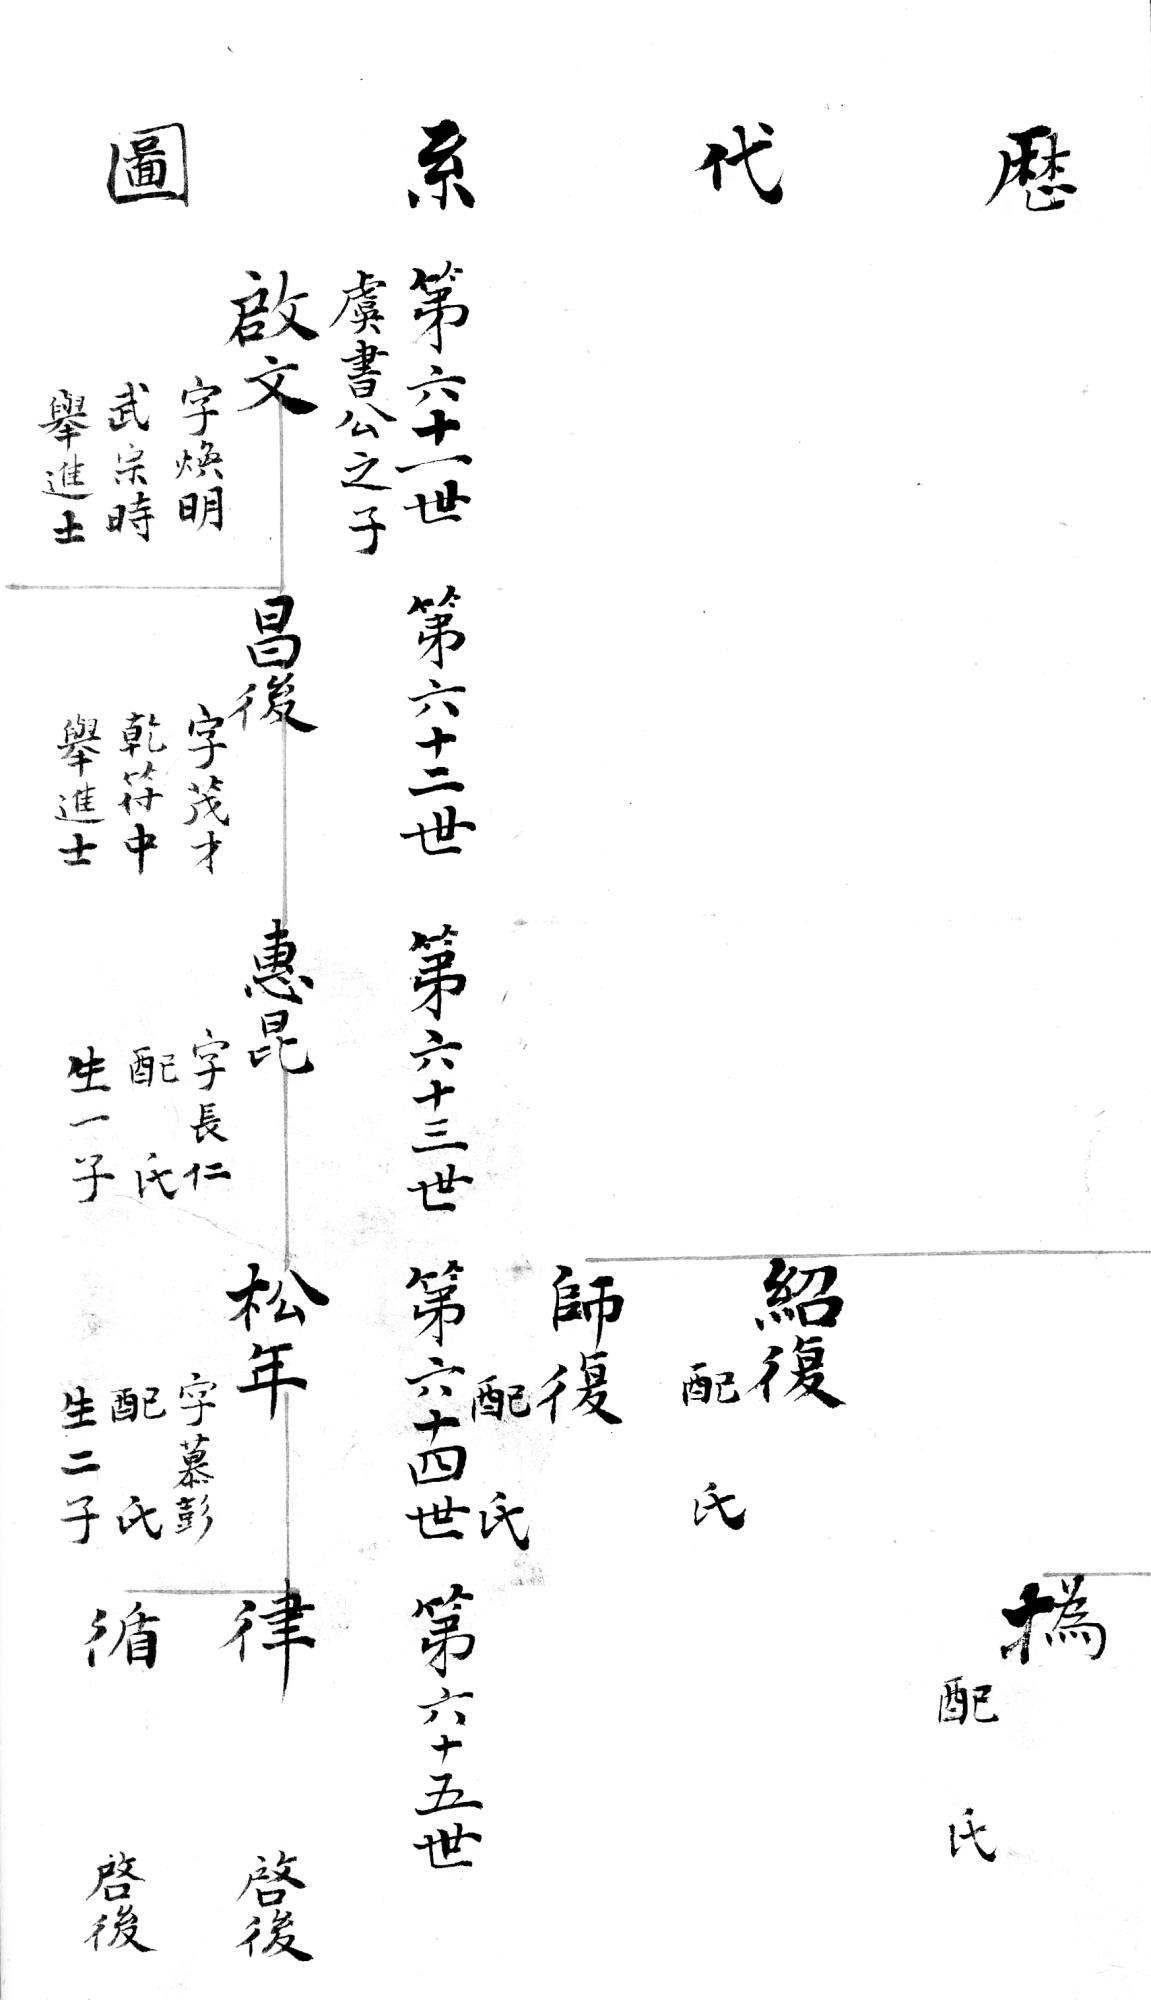 歷代系圖
撝
配 氏
紹復
配 氏
師復
配 氏
第六十一世
虞書公之子
啟文
字煥明
武宗時
舉進士
第六十二世
昌後
字茂才
乾符中
舉進士
第六十三世
惠昆
字長仁
配 氏
生一子
第六十四世
松年
字慕彭
配 氏
生二子
第六十五世
律
啓後
循
啓後